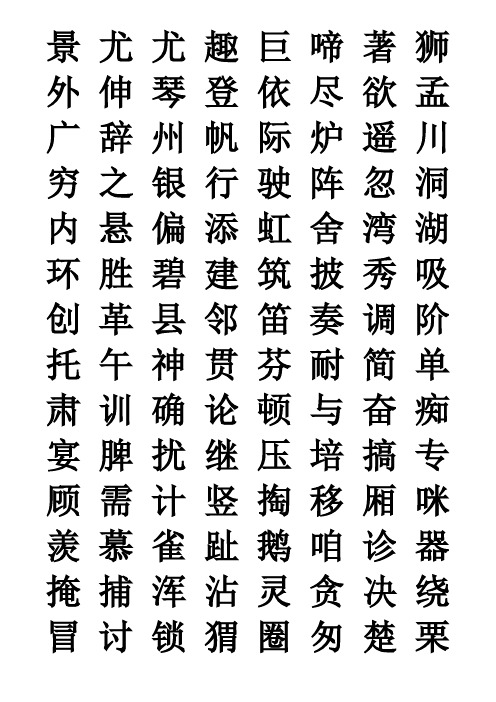 景 尤 尤 趣 巨 啼 著 狮
外 伸 琴 登 依 尽 欲 孟
广 辞 州 帆 际 炉 遥 川
穷 之 银 行 驶 阵 忽 洞
内 悬 偏 添 虹 舍 湾 湖
环 胜 碧 建 筑 披 秀 吸
创 革 县 邻 笛 奏 调 阶
托 午 神 贯 芬 耐 简 单
肃 训 确 论 顿 与 奋 痴
宴 脾 扰 继 压 培 搞 专
顾 需 计 竖 掏 移 厢 咪
羡 慕 雀 趾 鹅 咱 诊 器
掩 捕 浑 沾 灵 贪 决 绕
冒 讨 锁 猬 圈 匆 楚 栗